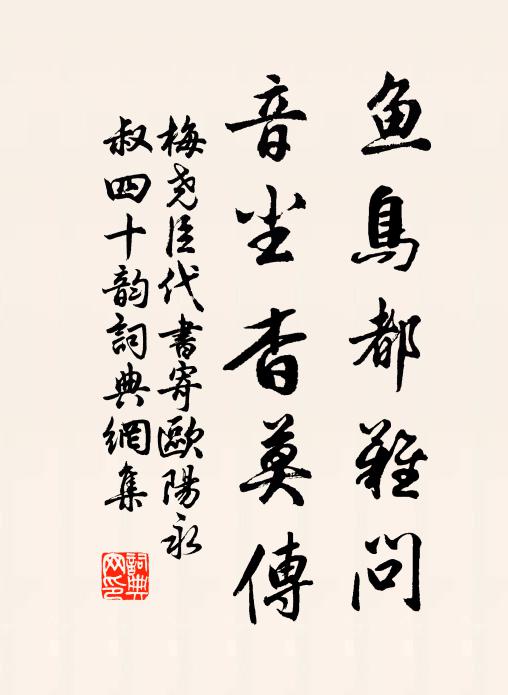 鱼鳥都難問
音尘杳莫傳
梅尧臣代書寄歐陽永
叔四十韵詞典網集
詞典网印